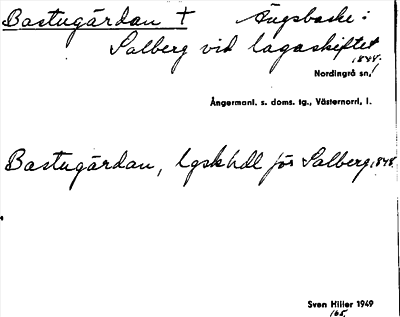 Bastugärdan † Ängsbacke:
Salberg vid lagaskiftet
1848.
Nordingrå sn,
Ångermanl. s. doms. tg., Västernorrl. l.
Bastugärdan, lgskhdl för Salberg 1848.
Sven Hiller 1949
165.